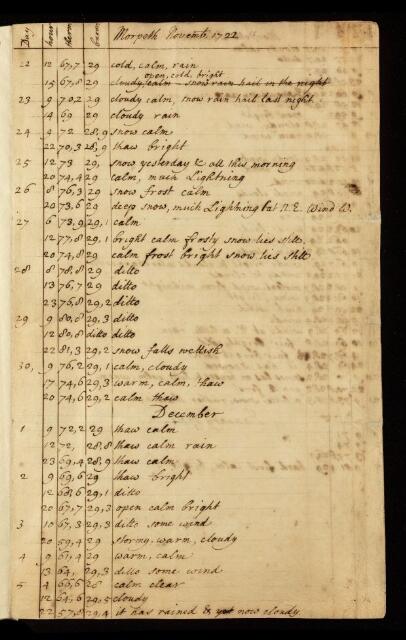 Day hour therm barm Morpeth Novembr 1722
22 12 67,7 29 cold, calm, rain
open, cold, bright
15 67,8 29 cloudy calm snow rain hail in the night
23 9 70,2 29 cloudy calm, snow rain hail last night
14 69 29 cloudy rain
24 4 72 28,9 snow calm
22 70,3 28,9 thaw bright
25 12 73 29, snow yesterday & all this morning
20 74,4 29 calm, much Lightning
26 8 76,3 29 snow frost calm
20 73,6 29 deep snow, much Lightning at N.E. Wind W.
27 6 73,9 29,1 calm
12 77,8 29,1 bright calm frosty snow lies still
20 74,8 29 calm frost bright snow lies still
28 8 78,8 29 ditto
13 76,7 29 ditto
23 76,8 29,2 ditto
29 9 80,8 29,3 ditto
12 80,8 ditto ditto
22 81,3 29,2 snow falls wettish
30, 9 76,2 29,1 calm, cloudy
17 74,6 29,3 warm, calm, thaw
20 74,6 29,2 calm thaw
December
1 9 72,2 29 thaw calm
12 72, 28,8 thaw calm rain
23 69,4 28,9 thaw calm
2 9 69,6 29 thaw bright
12 68,6 29,1 ditto
20 67,7 29,3 open calm bright
3 10 67,3 29,3 ditto some wind
20 59,4 29 stormy, warm, cloudy
4 9 61,4 29 warm, calm
13 64, 29,3 ditto some wind
5 4 66,6 28 calm clear
12 64,6 29,5 cloudy
22 57,8 29,4 it has rained & yet now cloudy